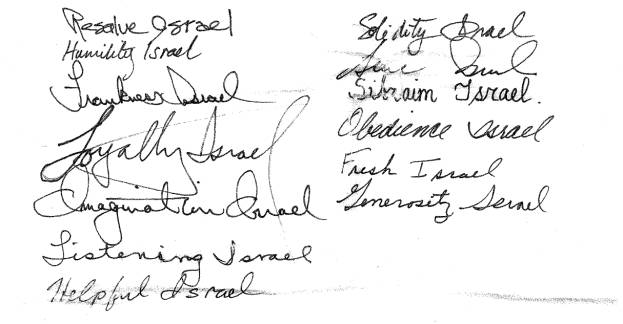 Resolve Israel
Humility Israel
Frankness Israel
Loyalty Israel
Imagination Israel
Listening Israel
Helpful Israel
Solidity Israel
Israel
Sibraim Israel.
Obedience Israel
Fresh Israel
Generosity Israel